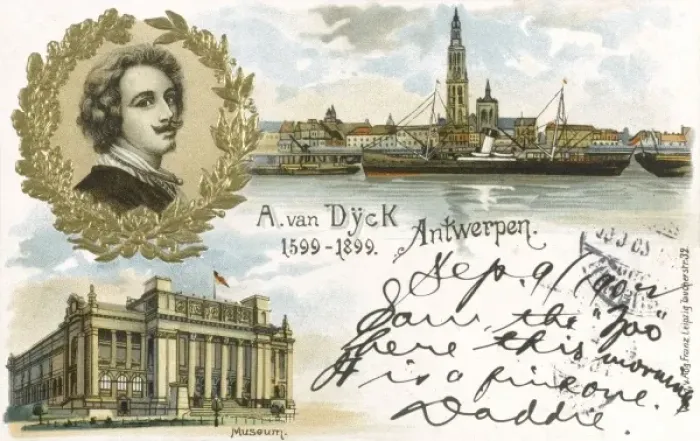 A. van Dÿck
1599-1899.
Antwerpen.
Sep. 9/1902
Saw the "Zoo"
here this morning
It is a fine one.
Daddie.
Museum.
Franz, Leipzig